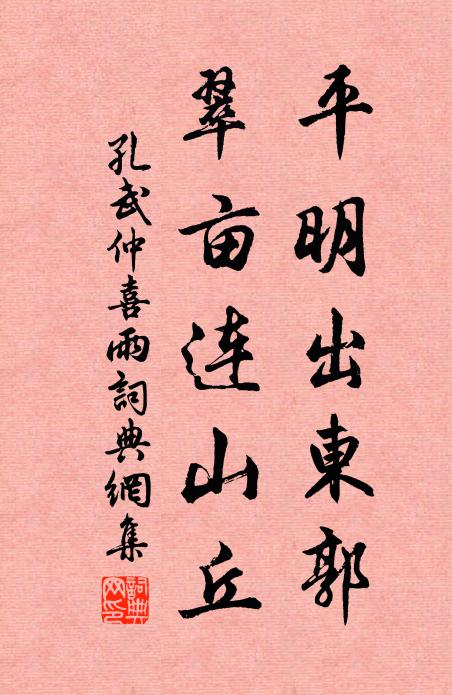 平明出東郭
翠亩连山丘
孔武仲喜雨詞典網集
詞典网印